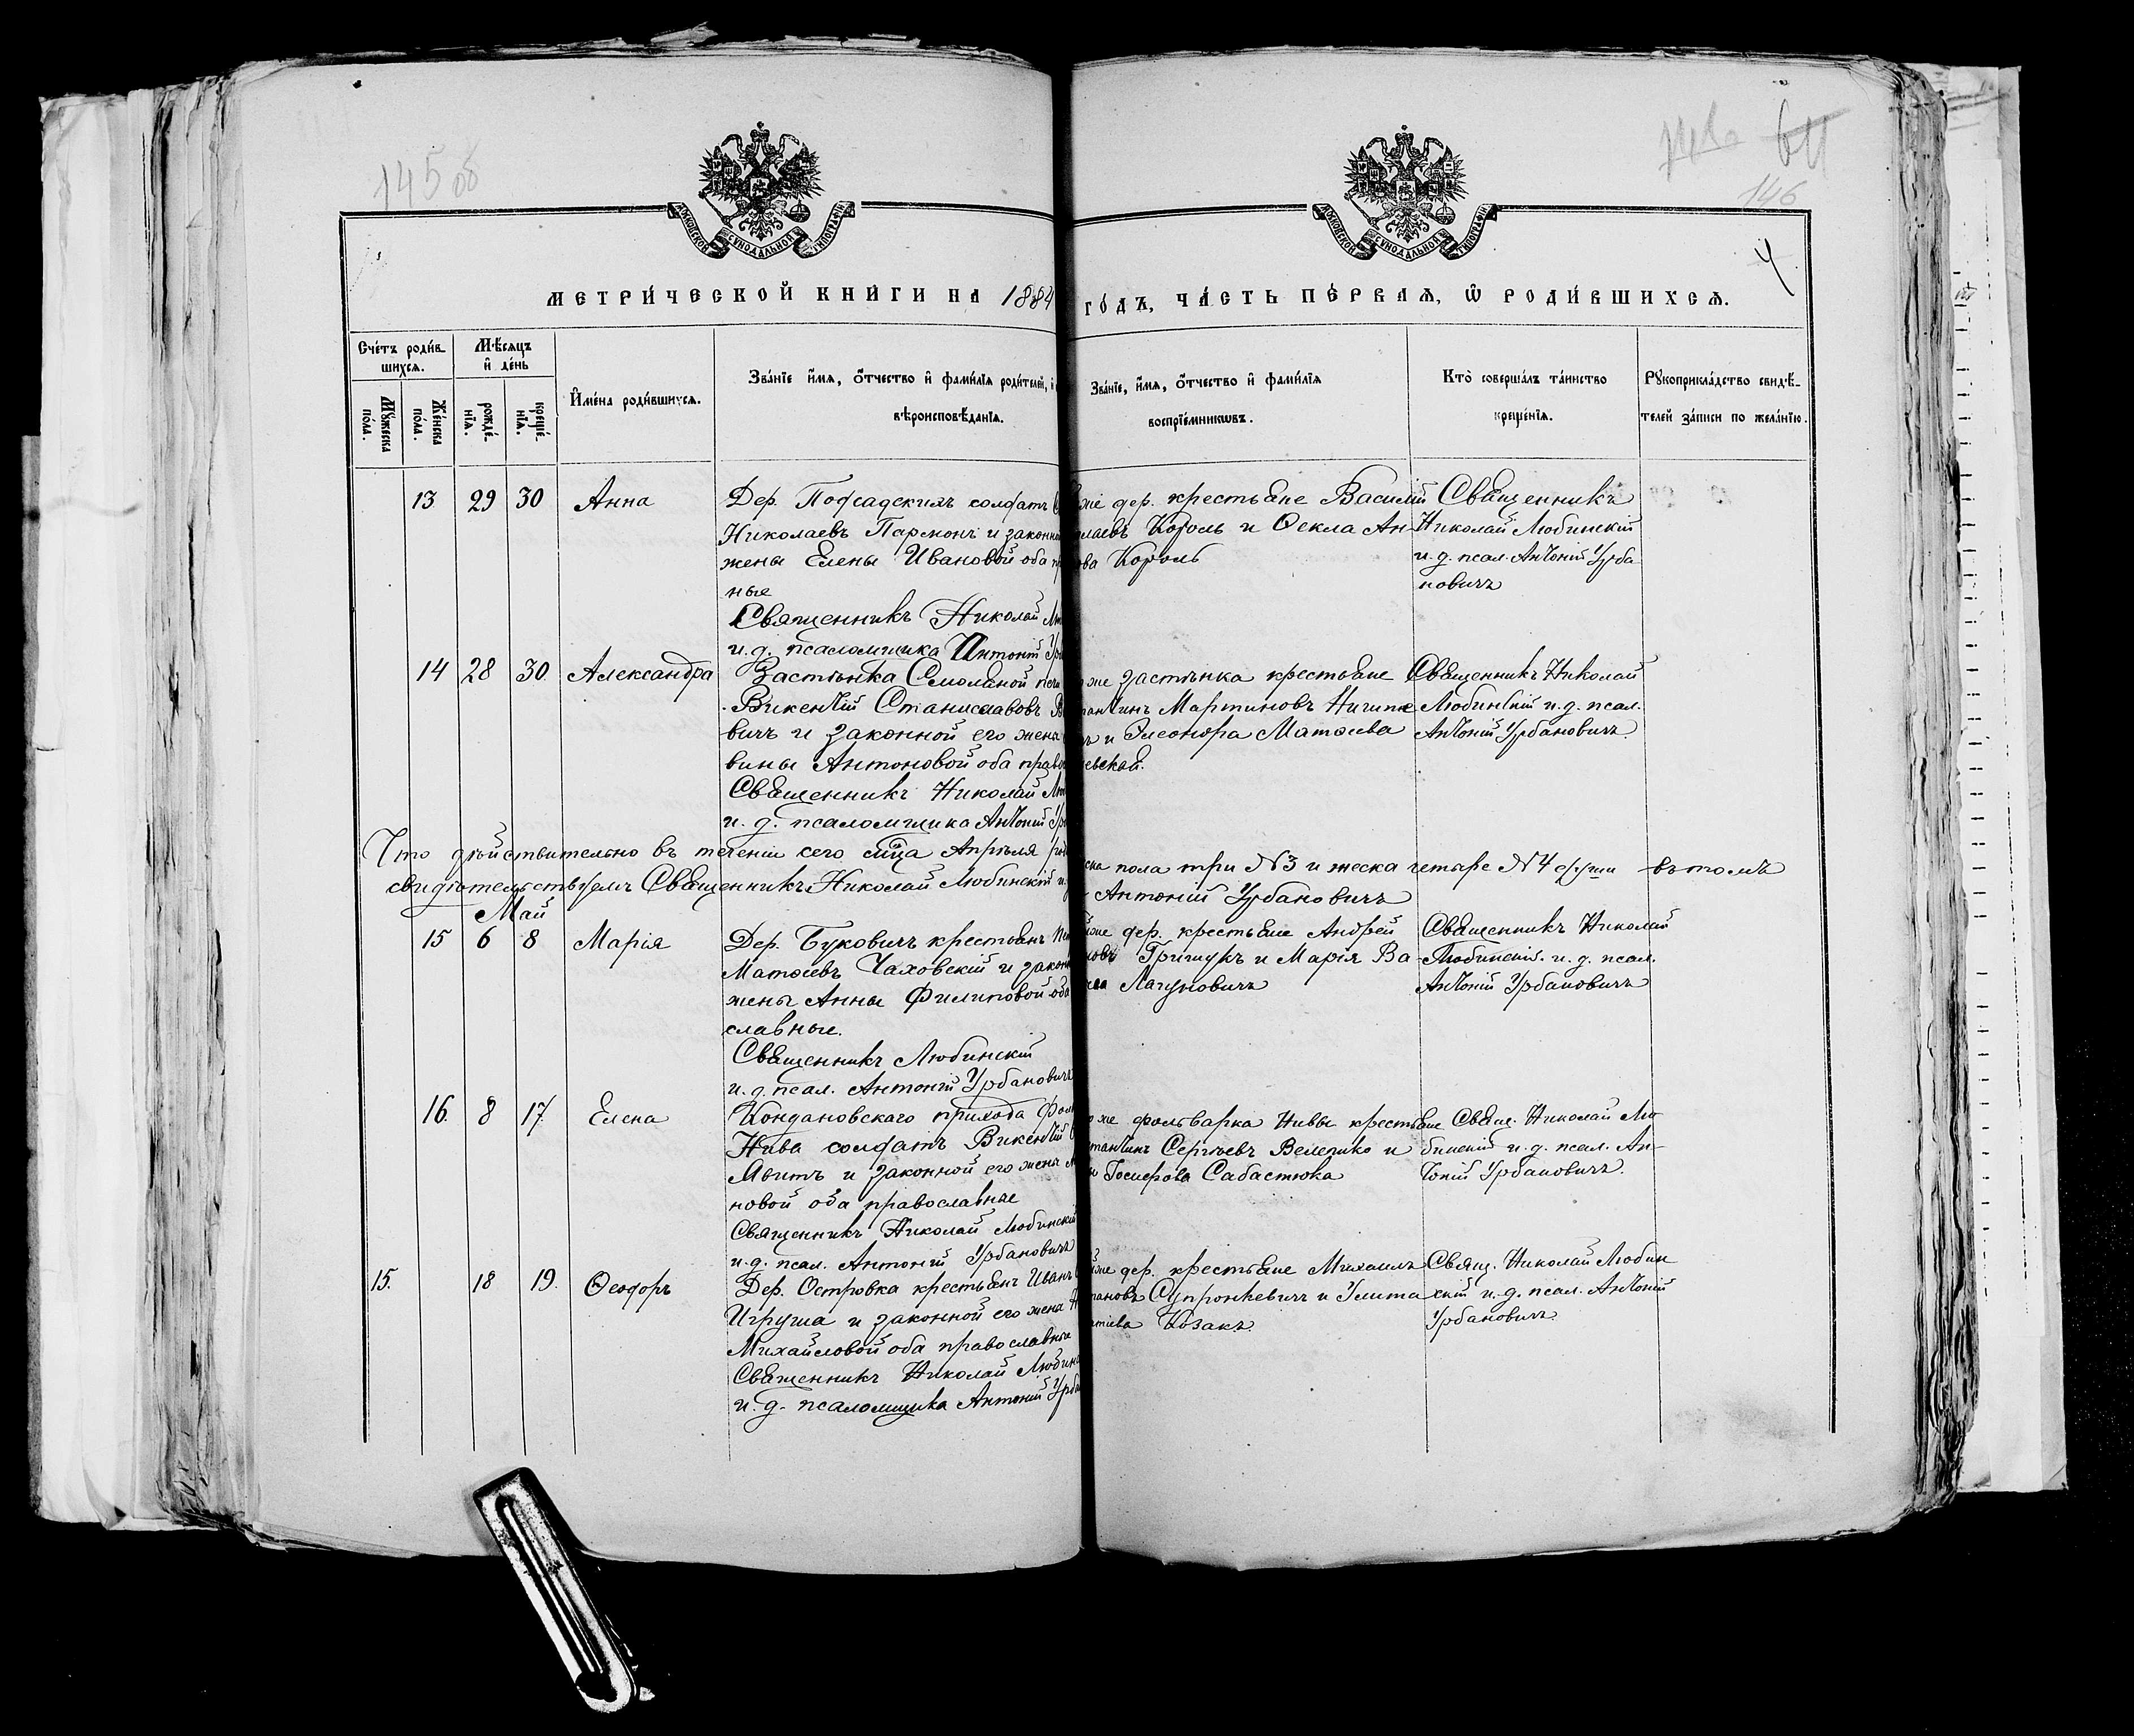 145 об
146
4
МОСКОВСКОЙ СѴНОДАЛЬНОЙ ТИПОГРАФІИ
МОСКОВСКОЙ СѴНОДАЛЬНОЙ ТИПОГРАФІИ
МЕТРИ́ЧЕСКОЙ КНИ́ГИ НА 1884
ГО́ДЪ, ЧА́СТЬ ПЕ́РВАѦ, Ѡ҆ РОДИ́ВШИХСѦ.
Сче́тъ роди́в-
шихсѧ.
Мꙋ́жеска по́ла.
Же́нска по́ла.
Мѣ́сѧцъ
и҆ де́нь
рожде́-
нїѧ.
креще́-
нїѧ.
И҆мена̀ роди́вшихсѧ.
Зва́нїе и҆́мѧ, ѻ҆́тчество и҆ фами́лїѧ роди́телей,
вѣроисповѣ́данїѧ.
Зва́нїе, и҆́мѧ, ѻ҆́тчество и҆ фами́лїѧ
воспрїе́мникѡвъ.
Кто̀ соверша́лъ та́инство
креще́нїѧ.
Рꙋкоприкла́дство свидѣ́-
телей за́писи по жела́нїю.
13 29 30 Анна
Дер. Посадскихъ солдатъ
Николаевъ Пармонъ и законн
жены Елены Ивановой оба
ные
Священникъ Николай
и. д. псаломщика Антоній
же дер. крестьяне Василій
лаевъ Король и Ѳекла Ан-
ова Король
Священникъ
Николай Любинскій
и. д. псал. Антоній Урба
новичъ
14 28 30. Александра
Застѣнка Смоляной
Викентій Станиславовъ
вичъ и законной его жены
вины Антоновой оба право
Священникъ Николай
и. д. псаломщика Антоній
же застѣнка крестьяне
тантинъ Мартиновъ
и Элеонора Матѳиева
евская.
Священникъ Николай
Любинскій и. д. псал.
Антоній Урбановичъ.
Что дѣйствительно въ теченіи сего мѣца Апрѣля
ска пола три №3 и жеска четыре №4 души въ томъ
свидѣтельствуемъ Священникъ Николай Любинскій и.
Антоній Урбановичъ
Май
15 6 8 Марія
Дер. Буковичъ крестьянъ
Матѳиевъ Чаховскій и закон
жены Анны Филиповой оба
славные.
Священникъ Любинскій
и. д. псал. Антоній Урбановичъ
же дер. крестьяне Андрей
новъ Грищукъ и Марія Ва-
Лагуновичъ
Священникъ Николай
Любинскій. и. д. псал.
Антоній Урбановичъ
16. 8 17. Елена
Койдановскаго прихода
Нива солдатъ Викентій
Явитъ и законной его жены
новой оба православные
Священникъ Николай Любинскій
и. д. псал. Антоній Урбановичъ
же фольварка Нивы крестьяне
тантинъ Сергѣевъ Велепко и
Сабастюка
Свящ. Николай Лю-
бинскій и. д. псал. Ан-
тоній Урбановичъ.
15. 18 19. Ѳеодоръ
Дер. Островка крестьянъ Иванъ
Игруша и законной его жена
Михайловой оба православные
Священникъ Николай Любин
и. д. псаломщика Антоній Урба
же дер. крестьяне Михаилъ
пановъ Супронкевичъ и Улита
Козакъ.
Свящ. Николай Любин
скій и. д. псал. Антоній
Урбановичъ.